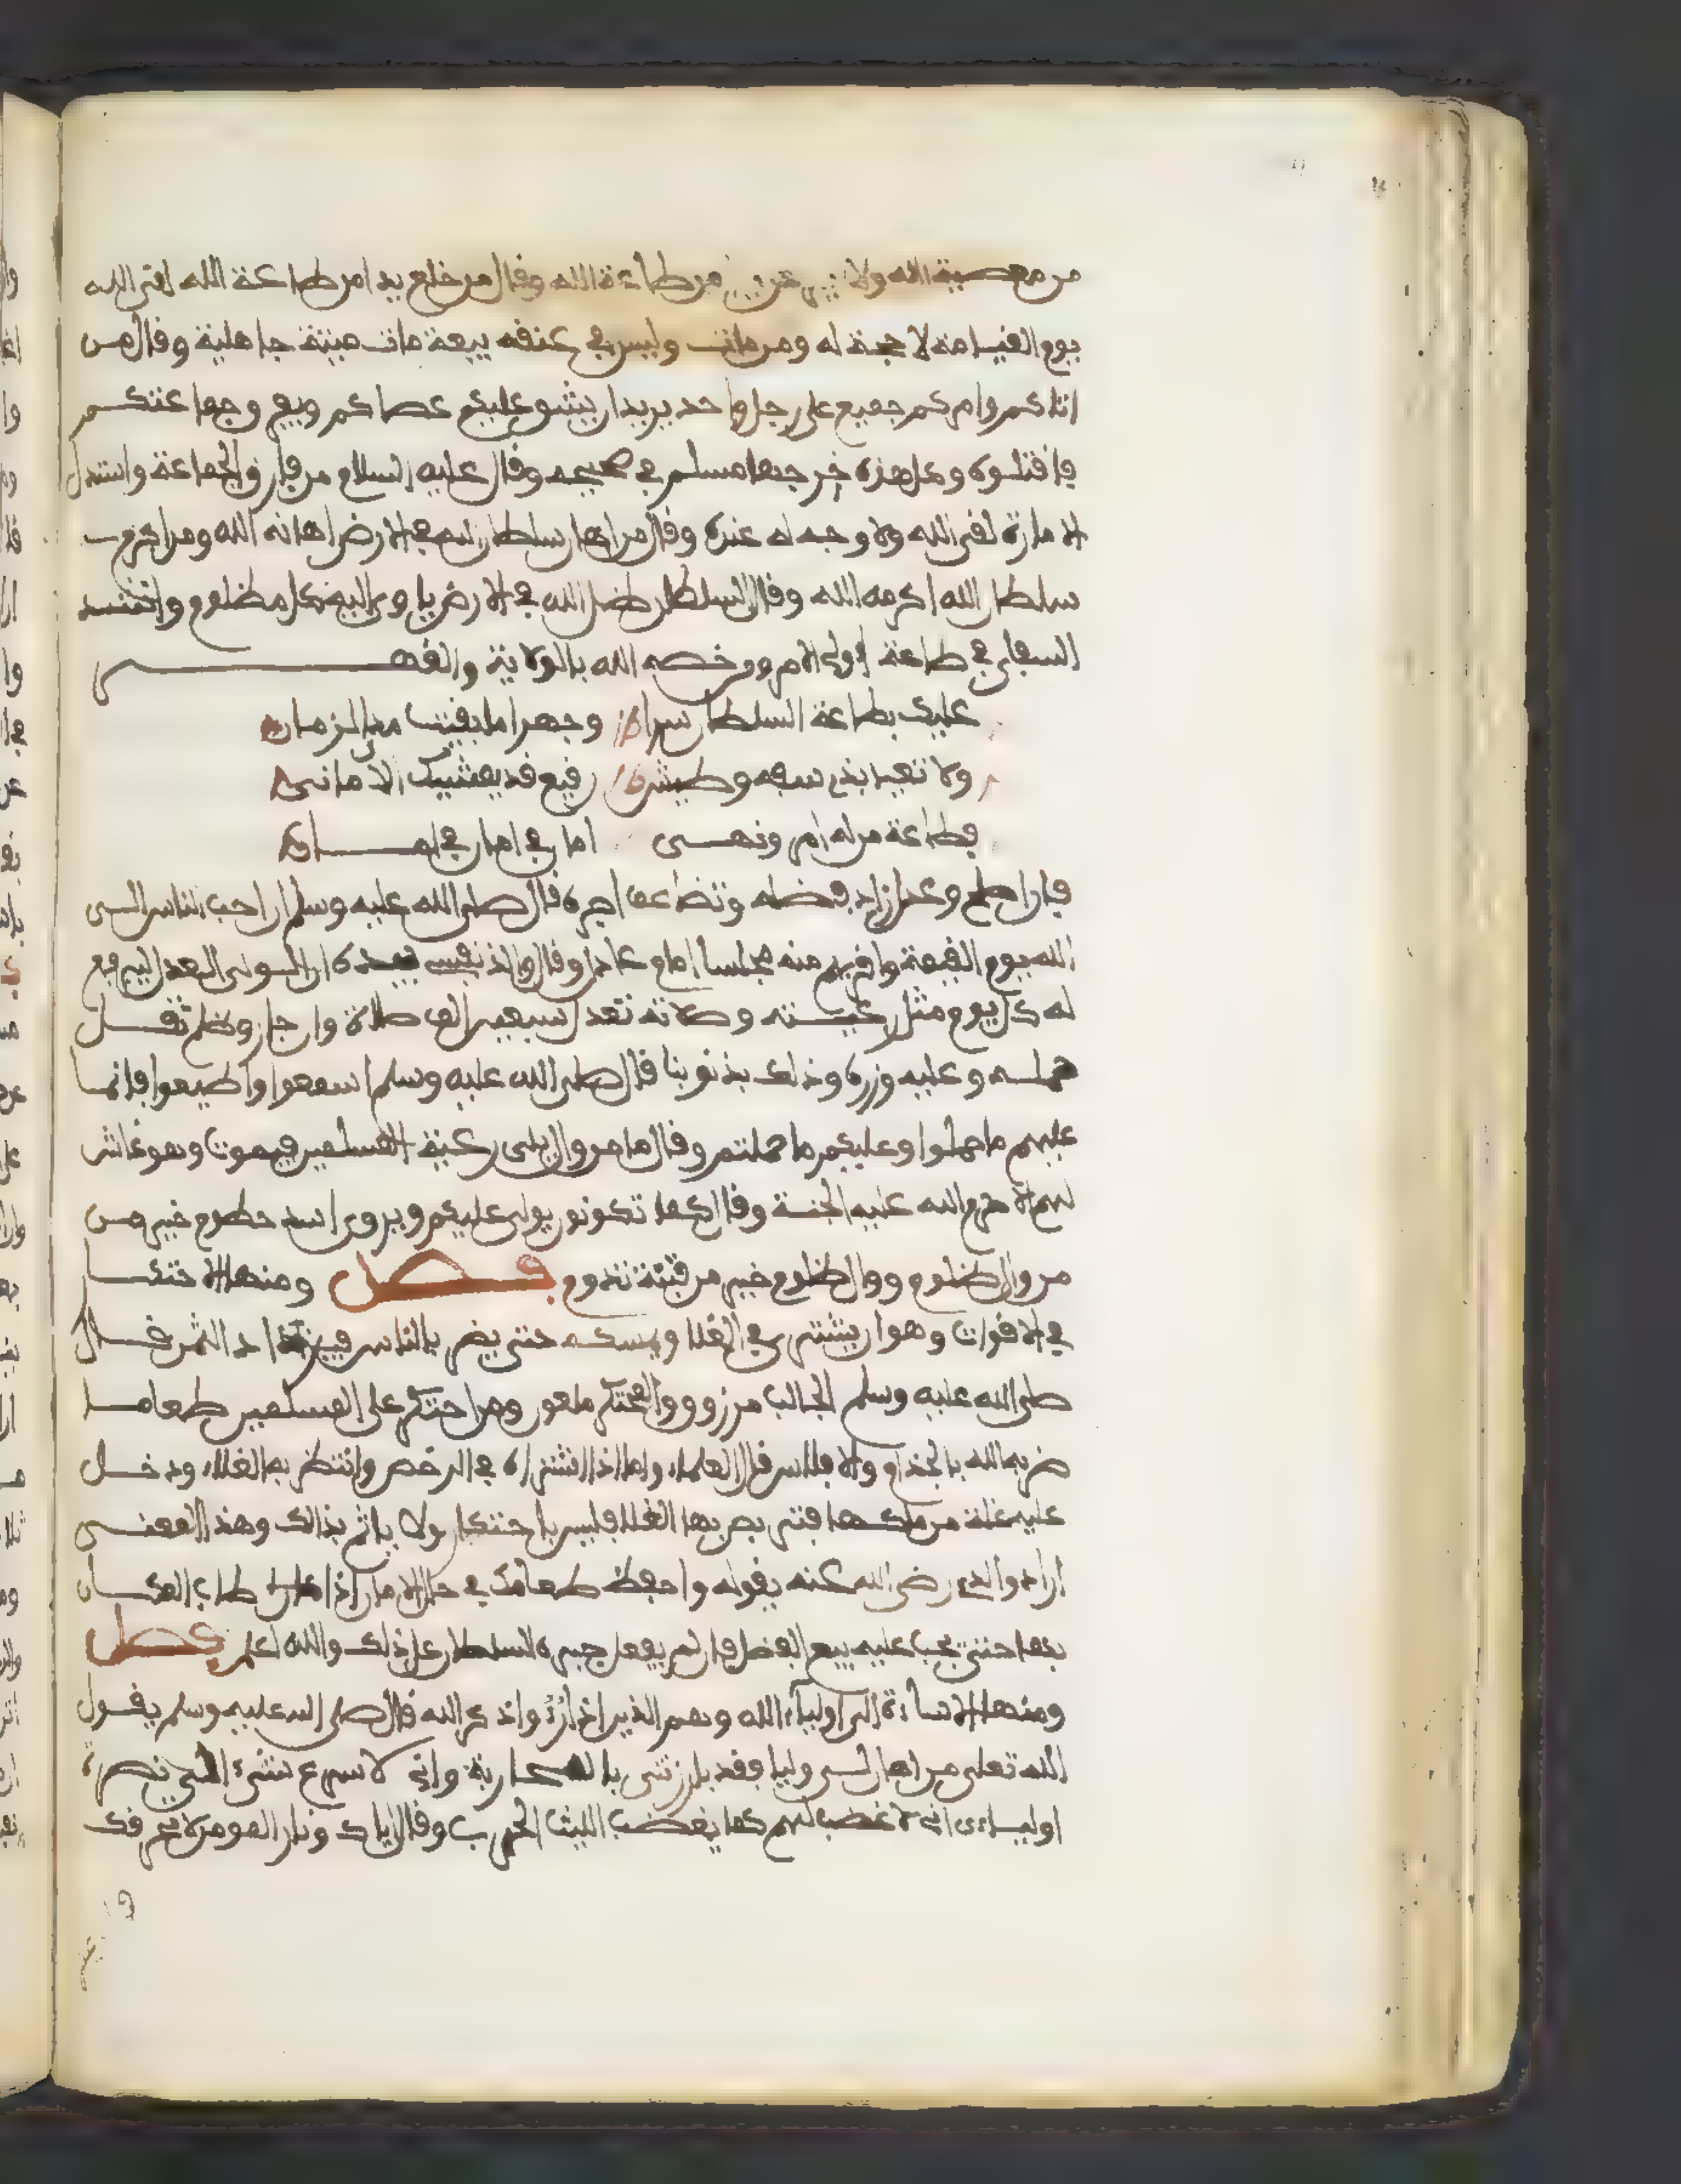 من معصية الله ولا من طاعة الله وقال من خلع يدا من طاعة الله لقي الله
يوم القيامة لا حجة له ومن مات وليس في عنقه بيعة مات ميتة جاهلية وقال من
اتاكم وامركم جميع على رجل واحد يريد ان يشق عليكم عصاكم ويفرق جماعتكم
فاقتلوه وكل هذه خرجها مسلم في صحيحه وقال عليه السلام من فارق الجماعة واستذل
الامارة لقي الله ولا وجه له عنده وقال من اهان سلطان الله في الارض اهانه الله ومن اكرم
سلطان الله اكرمه الله وقال السلطان ظل الله في الارض ياوي اليه كل مظلوم وانشد
السلفي في طاعة اولي الامر ومن خصه الله بالولاية والقهر
عليك بطاعة السلطان سرا وجهرا ما بقيت مدا الزمان
ولا تعبا بذي سفه وطيش رفيع قد يمشيك الاماني
فطاعة من له امر ونهي امان في امان في امان
فان اصلح وعدل زاد فضله وتضاعف اجره قال صلى الله عليه وسلم ان احب الناس الى
الله يوم القيمة واقربهم منه مجلسا امام عادل وقال والذي نفسي بيده ان الوالي العدل ليرفع
له كل يوم مثل رعيته وصلاته تعدل سبعين الف صلاة وان جار وظلم ثقل
حمله وعليه وزره وذلك بذنوبنا قال صلى الله عليه وسلم اسمعوا واطيعوا فانما
عليهم ما حملوا وعليكم ما حملتم وقال ما من وال يلي رعية المسلمين فيموت وهو غاش
لهم الا حرم الله عليه الجنة وقال كما تكونون يولى عليكم ويروى اسد حطوم خير من
من وال ظلوم ووال ظلوم خير من فتنة تدوم فصل ومنها الاحتكار
في الاقوات وهو ان يشتري في الغلا ويمسكه حتى يضر بالناس فيزداد الثمن قال
صلى الله عليه وسلم الجالب مرزوق والمحتكر ملعون ومن احتكر على المسلمين طعاما
ضربه الله بالجذام والافلاس قال العلماء واما اذا اشتراه في الرخص وانتظر به الغلاء ودخل
عليه غلة من ملكه فتربص بها الغلا فليس باحتكار ولا ياثم بذالك وهذا المعنى
اراد والدي رضي الله عنه بقوله واحفظ طعامك في حال الامان اذا طاب المكان
بها حتى يجب عليه بيع الفضل فان لم يفعل جبره السلطان على ذلك والله اعلم فصل
ومنها الاساءة الى اولياء الله وهم الذين اذا رؤوا ذكر الله قال صلى الله عليه وسلم يقول
الله تعلى من اهان لي وليا فقد بارزني بالمحاربة واني لاسرع شيء الى نصرة
اوليائي اني لاغضب لهم كما يغضب الليث الحرب وقال اياك ونار المومن لا تحرقك